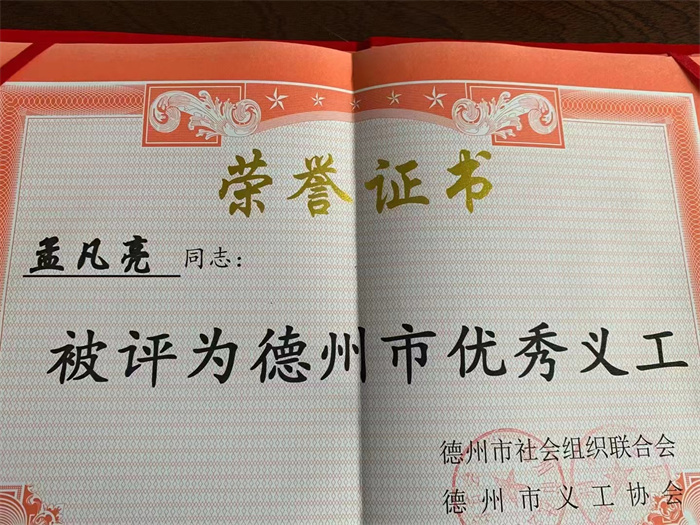 荣誉证书
孟凡亮 同志：
被评为德州市优秀义工
德州市社会组织联合会
德州市义工协会